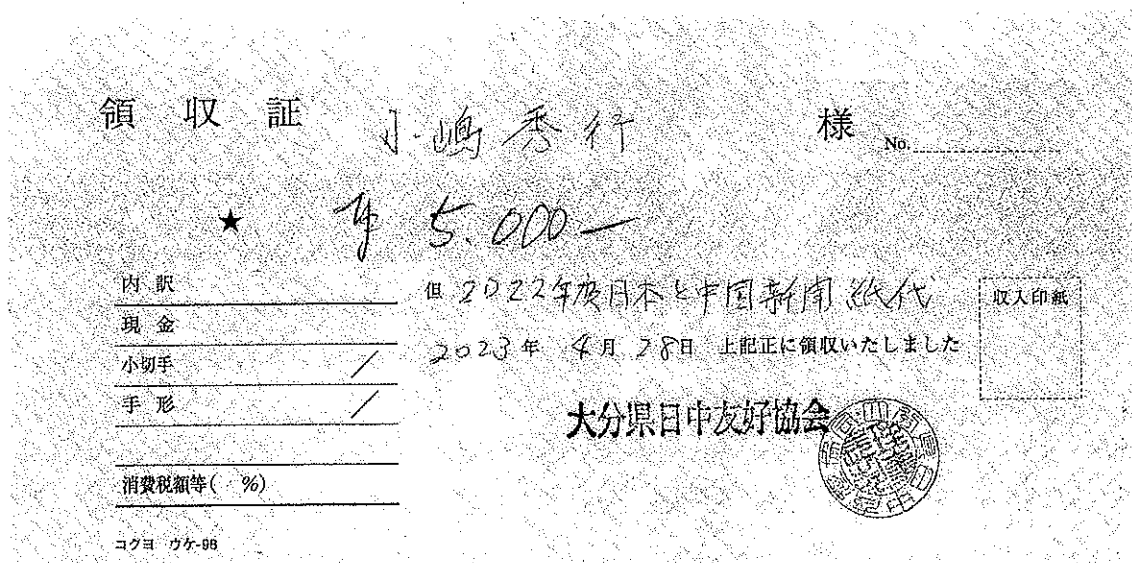 領収証 小嶋秀行 様 No.
★ ¥5.000－
内訳
現金
小切手 ／
手形 ／
消費税額等( %)
コクヨ ウケ-98
但 2022年度日本と中国新聞 紙代
2023年 4月 28日 上記正に領収いたしました
収入印紙
大分県日中友好協会